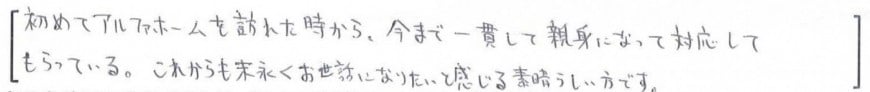 初めてアルファホームを訪れた時から、今まで一貫して親身になって対応して
もらっている。これからも末永くお世話になりたいと感じる素晴らしい方です。